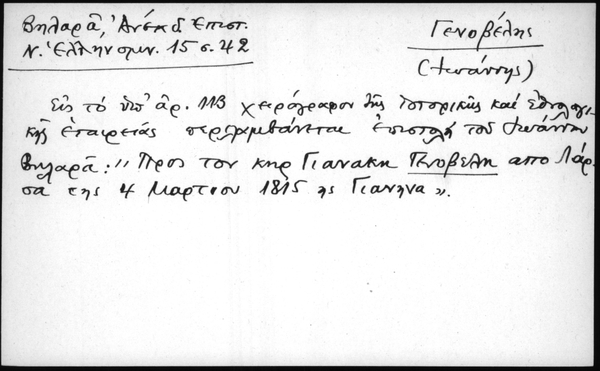 Βηλαρᾶ, Ἀνέκδ Ἐπιστ.
Ν. Ἑλληνομν. 15 σ. 42
Γενοβέλης
(Ἰωάννης)
Εἰς τό ὑπ' ἀρ. 113 χειρόγραφον τῆς Ἱστορικῆς καί Ἐθνολογι-
κῆς ἑταιρείας περιλαμβάνεται ἐπιστολή τοῦ Ἰωάννου
Βηλαρᾶ: "Προς τον κηρ Γιανακη Γενοβελη απο Λάρ-
σα της 4 Μαρτιου 1815 ης Γιανηνα".